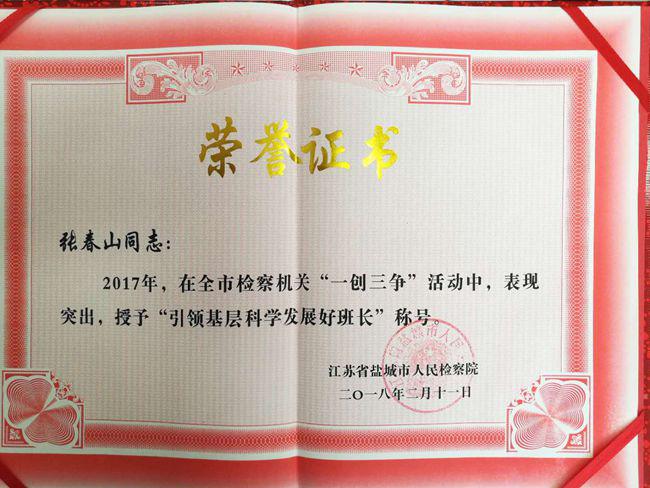 荣誉证书
张春山同志：
2017年，在全市检察机关“一创三争”活动中，表现
突出，授予“引领基层科学发展好班长”称号。
江苏省盐城市人民检察院
二〇一八年二月十一日